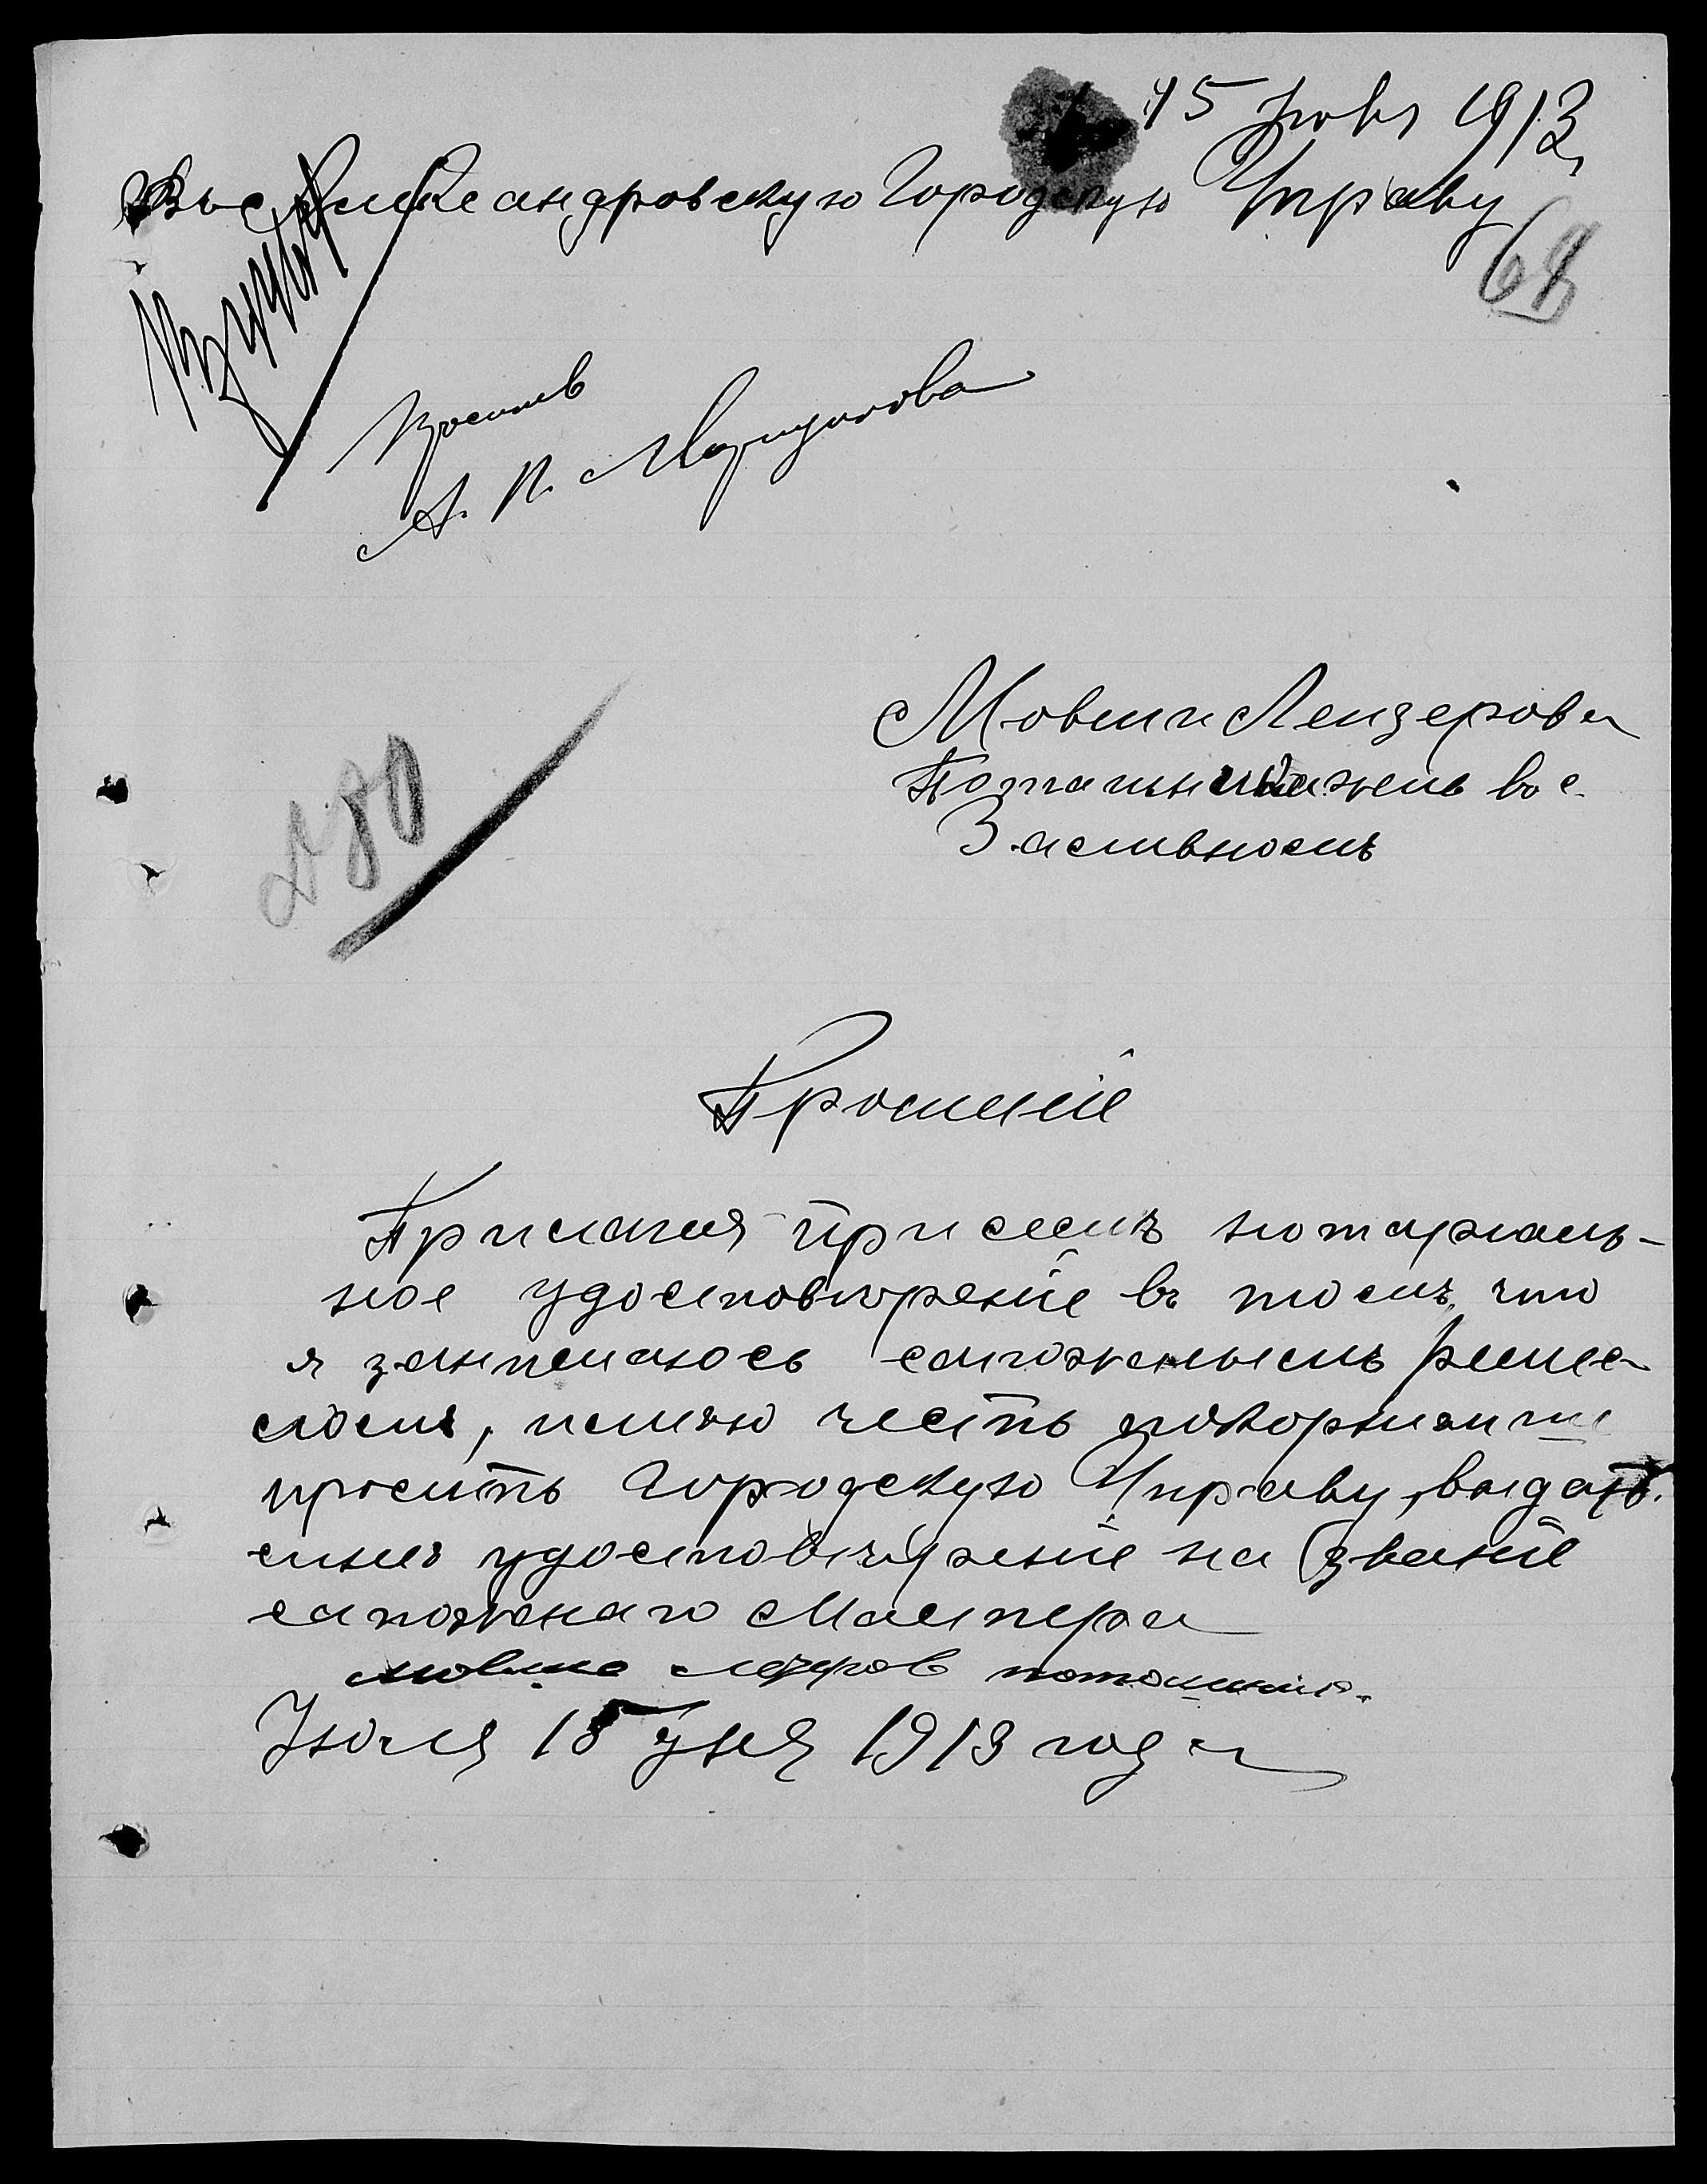 15 июля 1913
Въ Александровскую Городскую Управу
68
А. П.
Мовши Лейзерова
Поташника жив. в с.
280
Прошеніе
Прилагая при семъ нотаріаль-
ное удостовѣреніе въ томъ, что
я занимаюсь сапожнымъ реме-
сломъ, имѣю честь покорнейше
просить Городскую Управу, выдать
мнѣ удостовѣреніе на званіе
сапожнаго Мастера
мовша лезеров поташник.
Июля 15 дня 1913 года